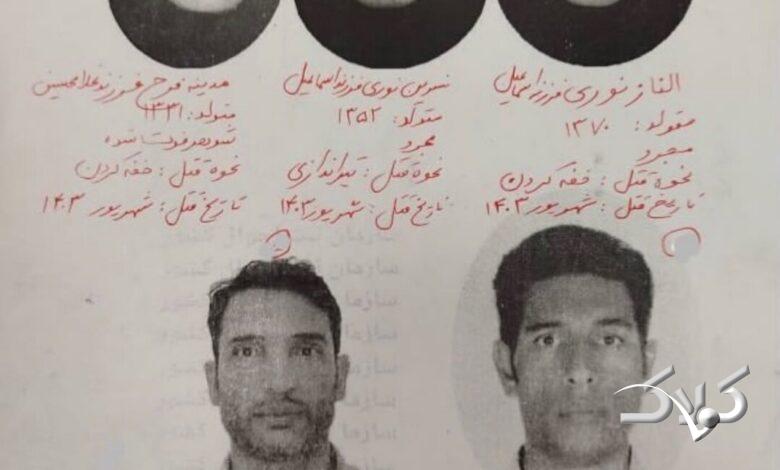 الناز نوری فرزند اسماعیل
متولد: ۱۳۷۰
مجرد
نحوه قتل: خفه کردن
تاریخ قتل: شهریور ۱۴۰۳
نسرین نوری فرزند اسماعیل
متولد: ۱۳۵۲
مجرد
نحوه قتل: تیراندازی
تاریخ قتل: شهریور ۱۴۰۳
مدینه فرخ فرزند غلامحسین
متولد: ۱۳۳۱
شوهر فوت شده
نحوه قتل: خفه کردن
تاریخ قتل: شهریور ۱۴۰۳
کولاک